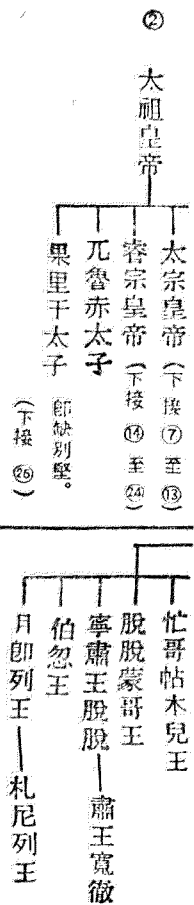 ②
太祖皇帝
太宗皇帝（下接⑦至⑬）
睿宗皇帝（下接⑭至㉔）
兀魯赤太子
果里干太子 卽缺別堅。
（下接㉖）
忙哥帖木兒王
脫脫蒙哥王
寧肅王脫脫
肅王寬徹
伯忽王
月卽列王
札尼列王